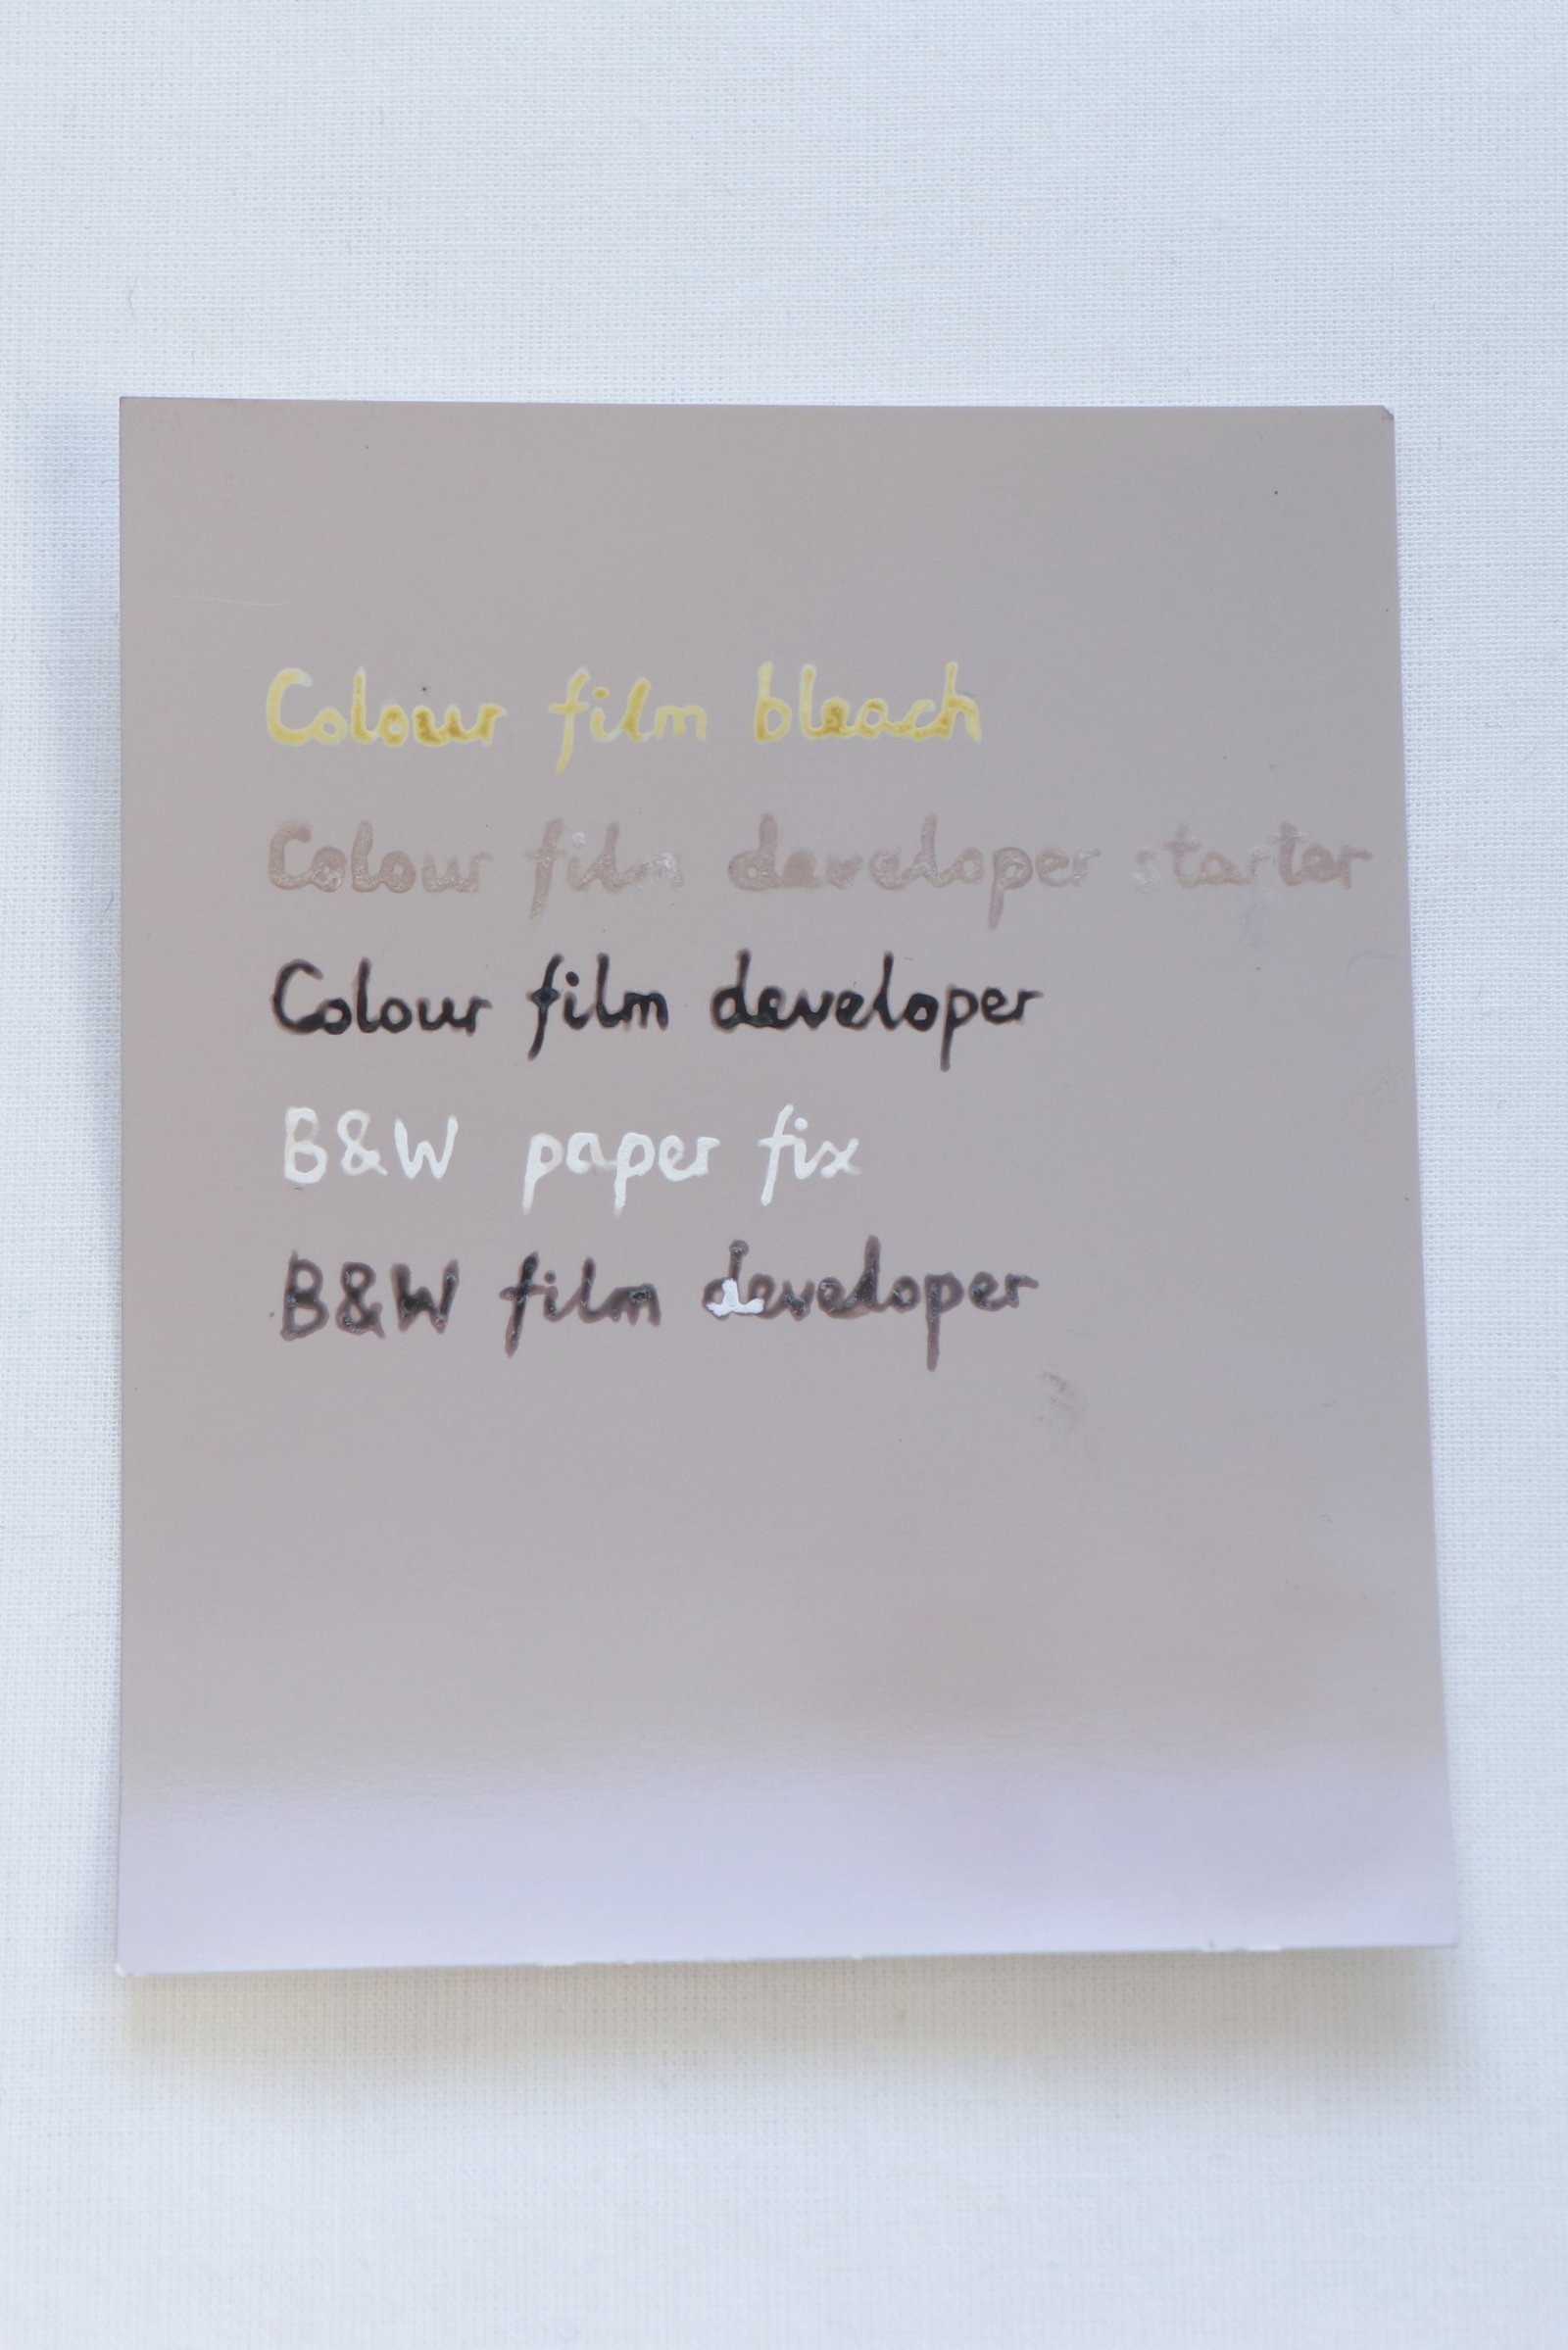 Colour film bleach
Colour film developer starter
Colour film developer
B&W paper fix
B&W film developer